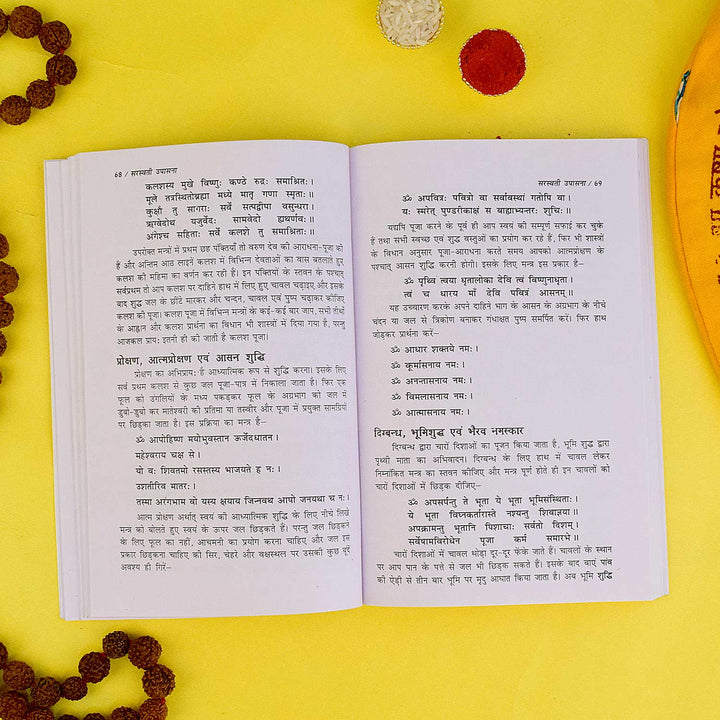 68 / सरस्वती उपासना
कलशस्य मुखे विष्णुः कण्ठे रुद्रः समाश्रितः।
मूले तत्रस्थितोब्रह्मा मध्ये मातृ गणा स्मृताः॥
कुक्षौ तु सागराः सर्वे सत्पद्वीपा वसुन्धरा।
ऋग्वेदोथ यजुर्वेदः सामवेदो ह्यथर्वणः॥
अंगेश्च सहिताः सर्वे कलशे तु समाश्रिताः॥
उपरोक्त मन्त्रों में प्रथम छह पंक्तियाँ तो वरुण देव की आराधना-पूजा की
हैं और अन्तिम आठ लाइनें कलश में विभिन्न देवताओं का वास बतलाते हुए
कलश की महिमा का वर्णन कर रही हैं। इन पंक्तियों के स्तवन के पश्चात्
सर्वप्रथम तो आप कलश पर दाहिने हाथ में लिए हुए चावल चढ़ाइए और इसके
बाद शुद्ध जल के छींटे मारकर और चन्दन, चावल एवं पुष्प चढ़ाकर कीजिए
कलश की पूजा। कलश पूजा में विभिन्न मन्त्रों के कई-कई बार जाप, सभी तीर्थों
के आह्वान और कलश प्रार्थना का विधान भी शास्त्रों में दिया गया है, परन्तु
आजकल प्रायः इतनी ही की जाती है कलश पूजा।
प्रोक्षण, आत्मप्रोक्षण एवं आसन शुद्धि
प्रोक्षण का अभिप्रायः है आध्यात्मिक रूप से शुद्धि करना। इसके लिए
सर्व प्रथम कलश से कुछ जल पूजा-पात्र में निकाला जाता है। फिर एक
फूल को उंगलियों के मध्य पकड़कर फूल के अग्रभाग को जल में
डुबो-डुबो कर मातेश्वरी की प्रतिमा या तस्वीर और पूजा में प्रयुक्त सामग्रियों
पर छिड़का जाता है। इस प्रक्रिया का मन्त्र है—
ॐ आपोहिष्णा मयोभुवस्तान ऊर्जेदधातन।
महेश्वराय चक्ष से।
यो वः शिवतमो रसस्तस्य भाजयते ह नः।
उशतीरिव मातरः।
तस्मा अरंगभाम वो यस्य क्षयाय जिन्नवथ आपो जनयथा च नः।
आत्म प्रोक्षण अर्थात् स्वयं की आध्यात्मिक शुद्धि के लिए नीचे लिखे
मन्त्र को बोलते हुए स्वयं के ऊपर जल छिड़कते हैं। परन्तु जल छिड़कने
के लिए फूल का नहीं, आचमनी का प्रयोग करना चाहिए और जल इस
प्रकार छिड़कना चाहिए की सिर, चेहरे और वक्षस्थल पर उसकी कुछ बूँदें
अवश्य ही गिरें—
सरस्वती उपासना / 69
ॐ अपवित्रः पवित्रो वा सर्वावस्थां गतोपि वा।
यः स्मरेत् पुण्डरीकाक्षं स बाह्याभ्यन्तरः शुचिः॥
यद्यपि पूजा करने के पूर्व ही आप स्वयं की सम्पूर्ण सफाई कर चुके
हैं तथा सभी स्वच्छ एवं शुद्ध वस्तुओं का प्रयोग कर रहे हैं, फिर भी शास्त्रों
के विधान अनुसार पूजा-आराधना करते समय आपको आत्मप्रोक्षण के
पश्चात् आसन शुद्धि करनी होगी। इसके लिए मन्त्र इस प्रकार है—
ॐ पृथ्वि त्वया धृतालोका देवि त्वं विष्णुनाधृता।
त्वं च धारय मां देवि पवित्रं आसनम्॥
यह उच्चारण करके अपने दाहिने भाग के आसन के अग्रभाग के नीचे
चंदन या जल से त्रिकोण बनाकर गंधाक्षत पुष्प समर्पित करें। फिर हाथ
जोड़कर प्रार्थना करें—
ॐ आधार शक्तये नमः।
ॐ कूर्मासनाय नमः।
ॐ अनन्तासनाय नमः।
ॐ विमलासनाय नमः।
ॐ आत्मासनाय नमः।
दिग्बन्ध, भूमिशुद्ध एवं भैरव नमस्कार
दिग्बन्ध द्वारा चारों दिशाओं का पूजन किया जाता है, भूमि शुद्ध द्वारा
पृथ्वी माता का अभिवादन। दिग्बन्ध के लिए हाथ में चावल लेकर
निम्नांकित मन्त्र का स्तवन कीजिए और मन्त्र पूर्ण होते ही इन चावलों को
चारों दिशाओं में छिड़क दीजिए—
ॐ अपसर्पन्तु ते भूता ये भूता भूमिसंस्थिताः।
ये भूता विघ्नकर्तारास्ते नश्यन्तु शिवाज्ञया॥
अपक्रामन्तु भूतानि पिशाचाः सर्वतो दिशम्।
सर्वेषामविरोधेन पूजा कर्म समारभे॥
चारों दिशाओं में चावल थोड़ा दूर-दूर फेंके जाते हैं। चावलों के स्थान
पर आप पान के पत्ते से जल भी छिड़क सकते हैं। इसके बाद बाएं पांव
की ऐड़ी से तीन बार भूमि पर मृदु आघात किया जाता है। अब भूमि शुद्धि